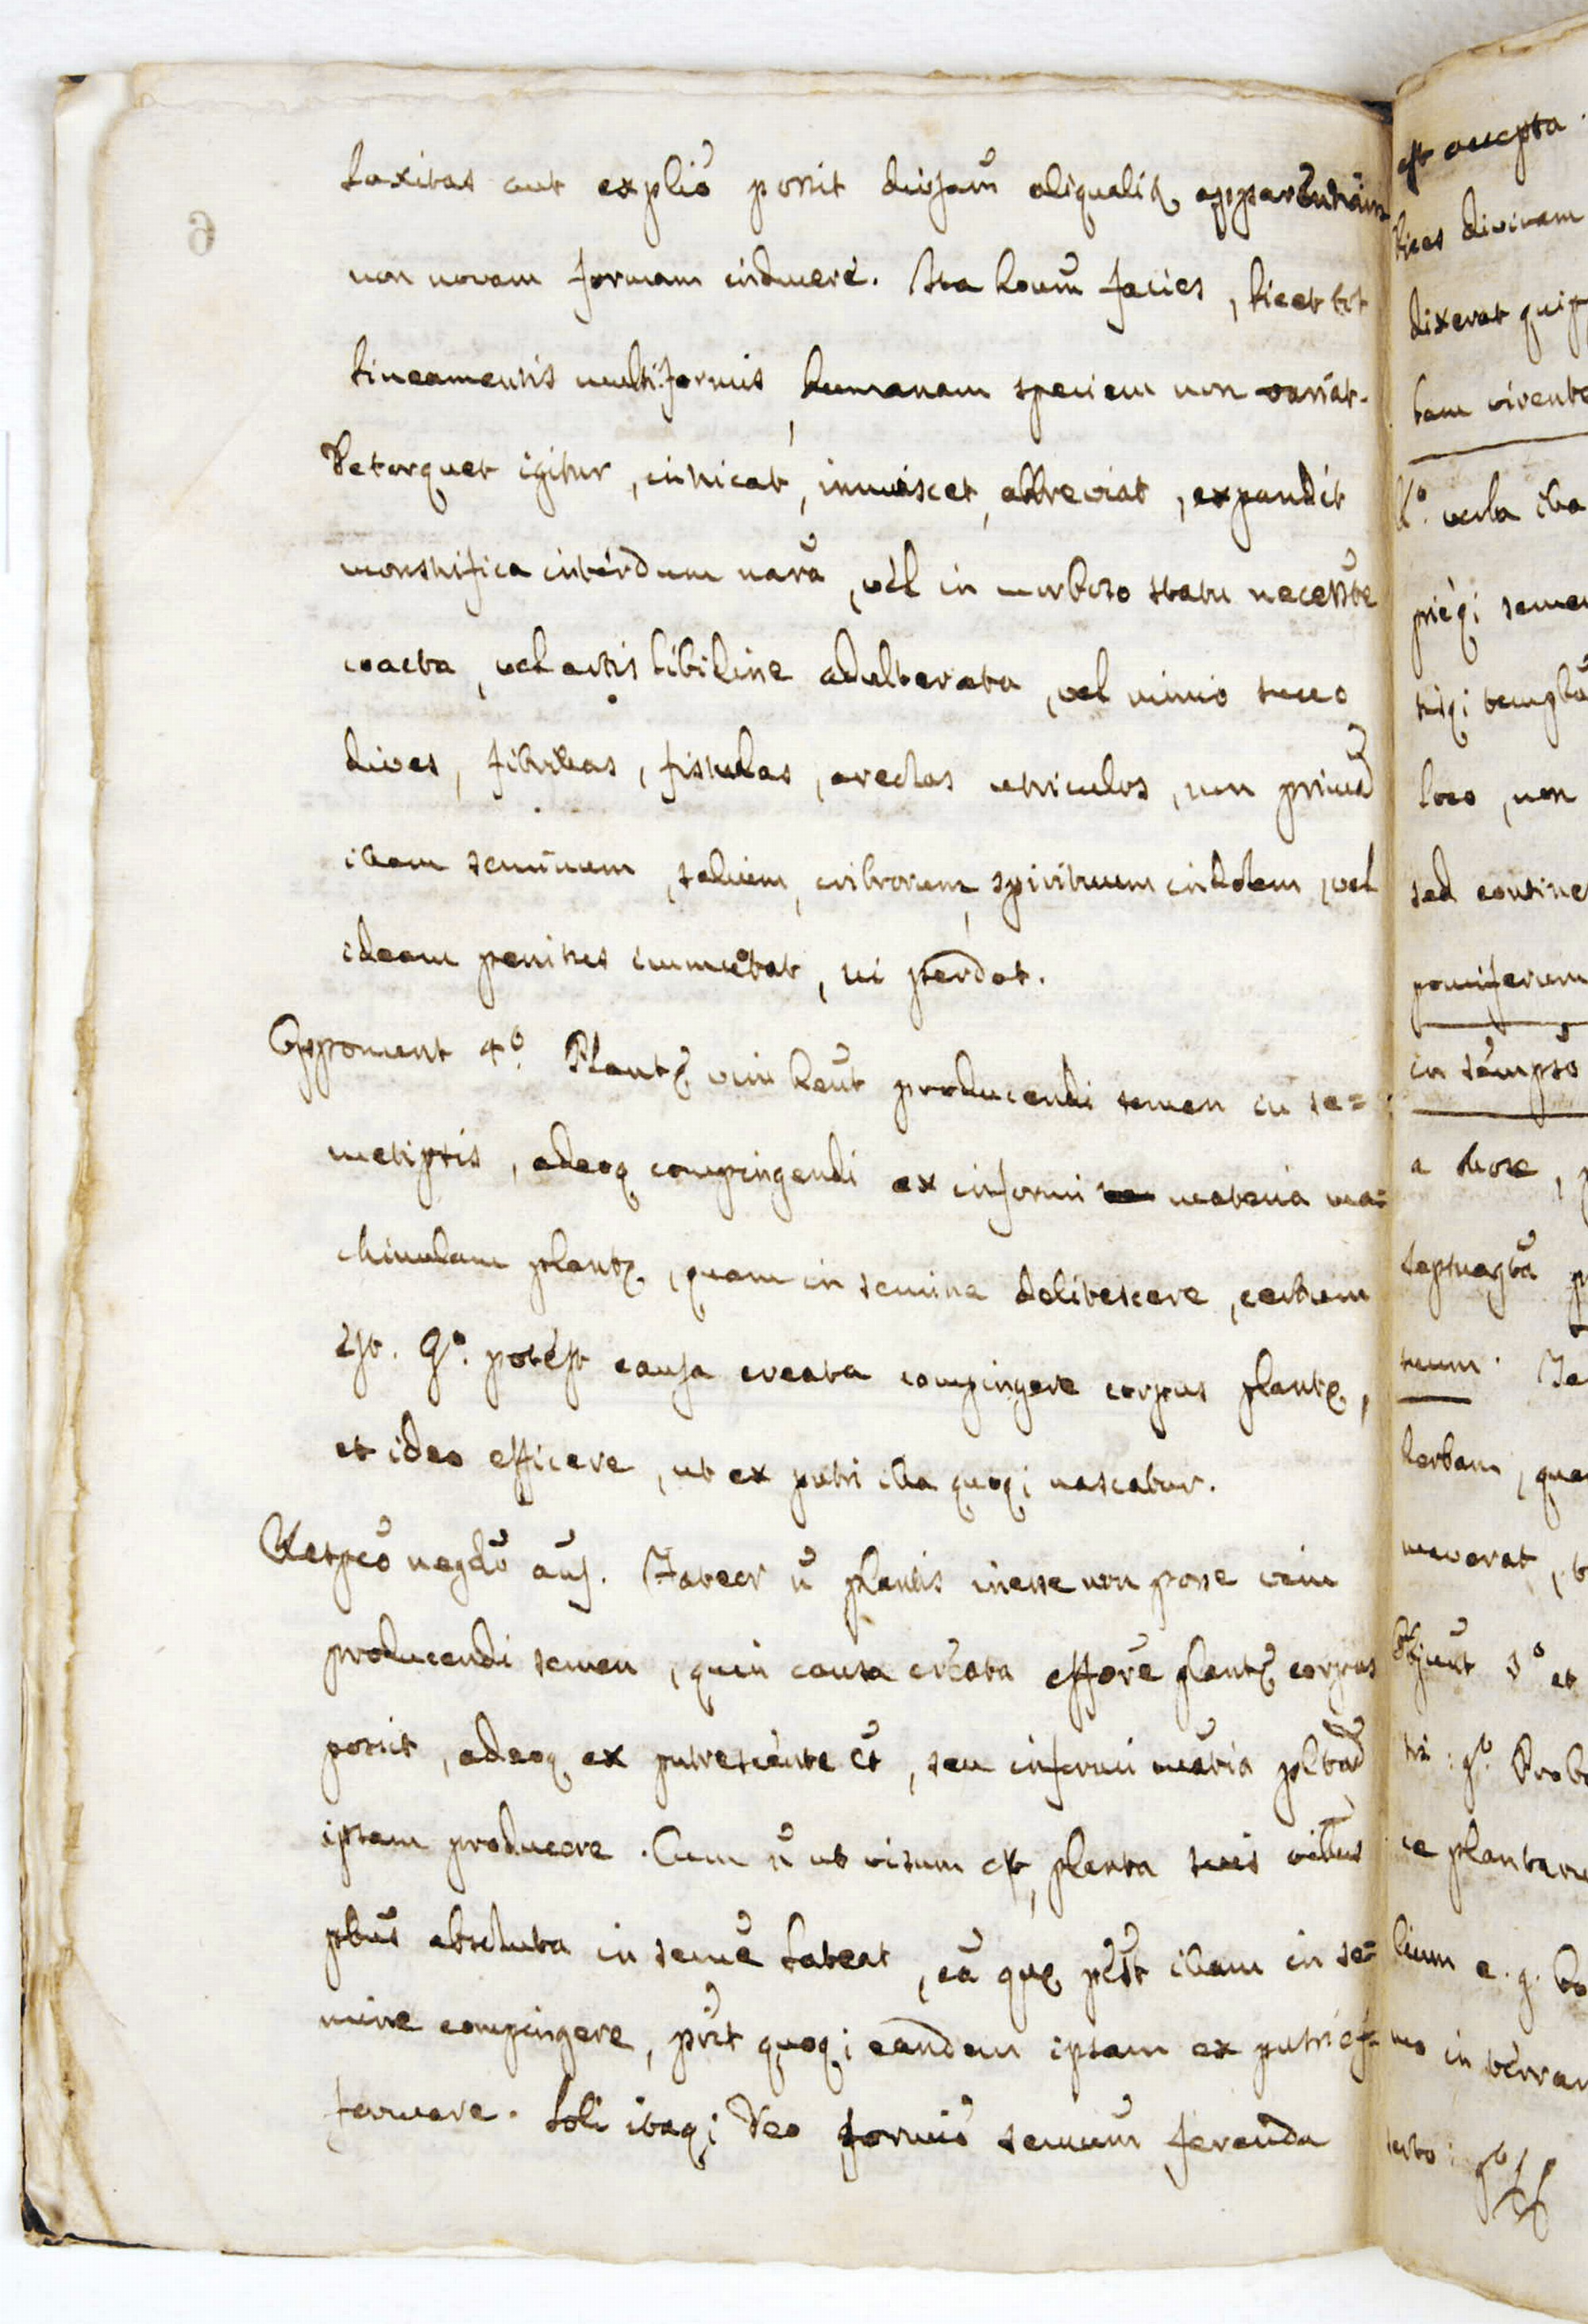 laxitas aut expliõ possit diversam aliqualiq apparentiam
non novam formam induere. Ita homũ facies, licet tot
lineamentis multiformis, humanam speciem non variat.
Detorquet igitur, intricat, inmiscet, abbreviat, expandit
monstrifica interdum narã, vel in morboso statu necessẽte
coacta, vel artis libidine adulterata, vel nimio succo
dives, fibrillas, fistulas, areolas utriculos, non
illam seminum, salium, cribrorum, spirituum indolem, vel
ideam penitus immutat, ui perdat.
Opponunt 4º. Plantę vim heũt producendi semen in se=
metipsis, adeoq compingendi ex informi materia ma=
chinulam plantę, quam in semine delitescere, certum
est. gº. potest causa creata compingere corpus plantę,
et ideo efficere, ut ex putri illa quoq; nascatur.
Respeõ negdõ añs. Fateor ñ plantis inesse non posse vim
producendi semen, quin causa creata effõre plantę corpus
possit, adeoq ex putrescente ẽt, seu informi mãtria
ipsam producere. Cum ñ ut visum est, planta suis
absoluta in semĩe lateat, cã quę põst illam in se=
mine compingere, põt quoq; eandem ipsam ex putri ef=
formare. Soli itaq; Deo formiõ seminũ ferenda
est accepta.
tices divinam
dixerat quip
tam vivente
verba illa
semen
loco, non
sed contine
pomiferum
in semipsõ
a more, p
septuagtã p
suum. Fe
herbam, quã
maverat, t
Objiciũt 3º et
tri: gº. Prob
ce plantaru
lium e. g. bo
mo in terram